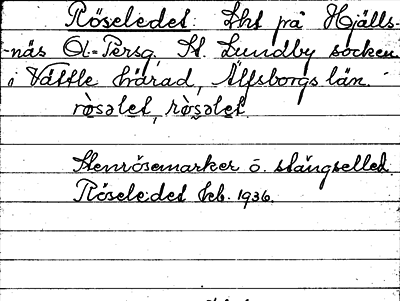 Röseledet. Lht på Hjälls-
-näs Ol-Persg, St. Lundby socken
i Vättle härad, Älfsborgs län.
rɷ̀səlet, rɷ̀səlet.
Stenrösemarker ö. stängselled.
Röseledet Feb. 1936.